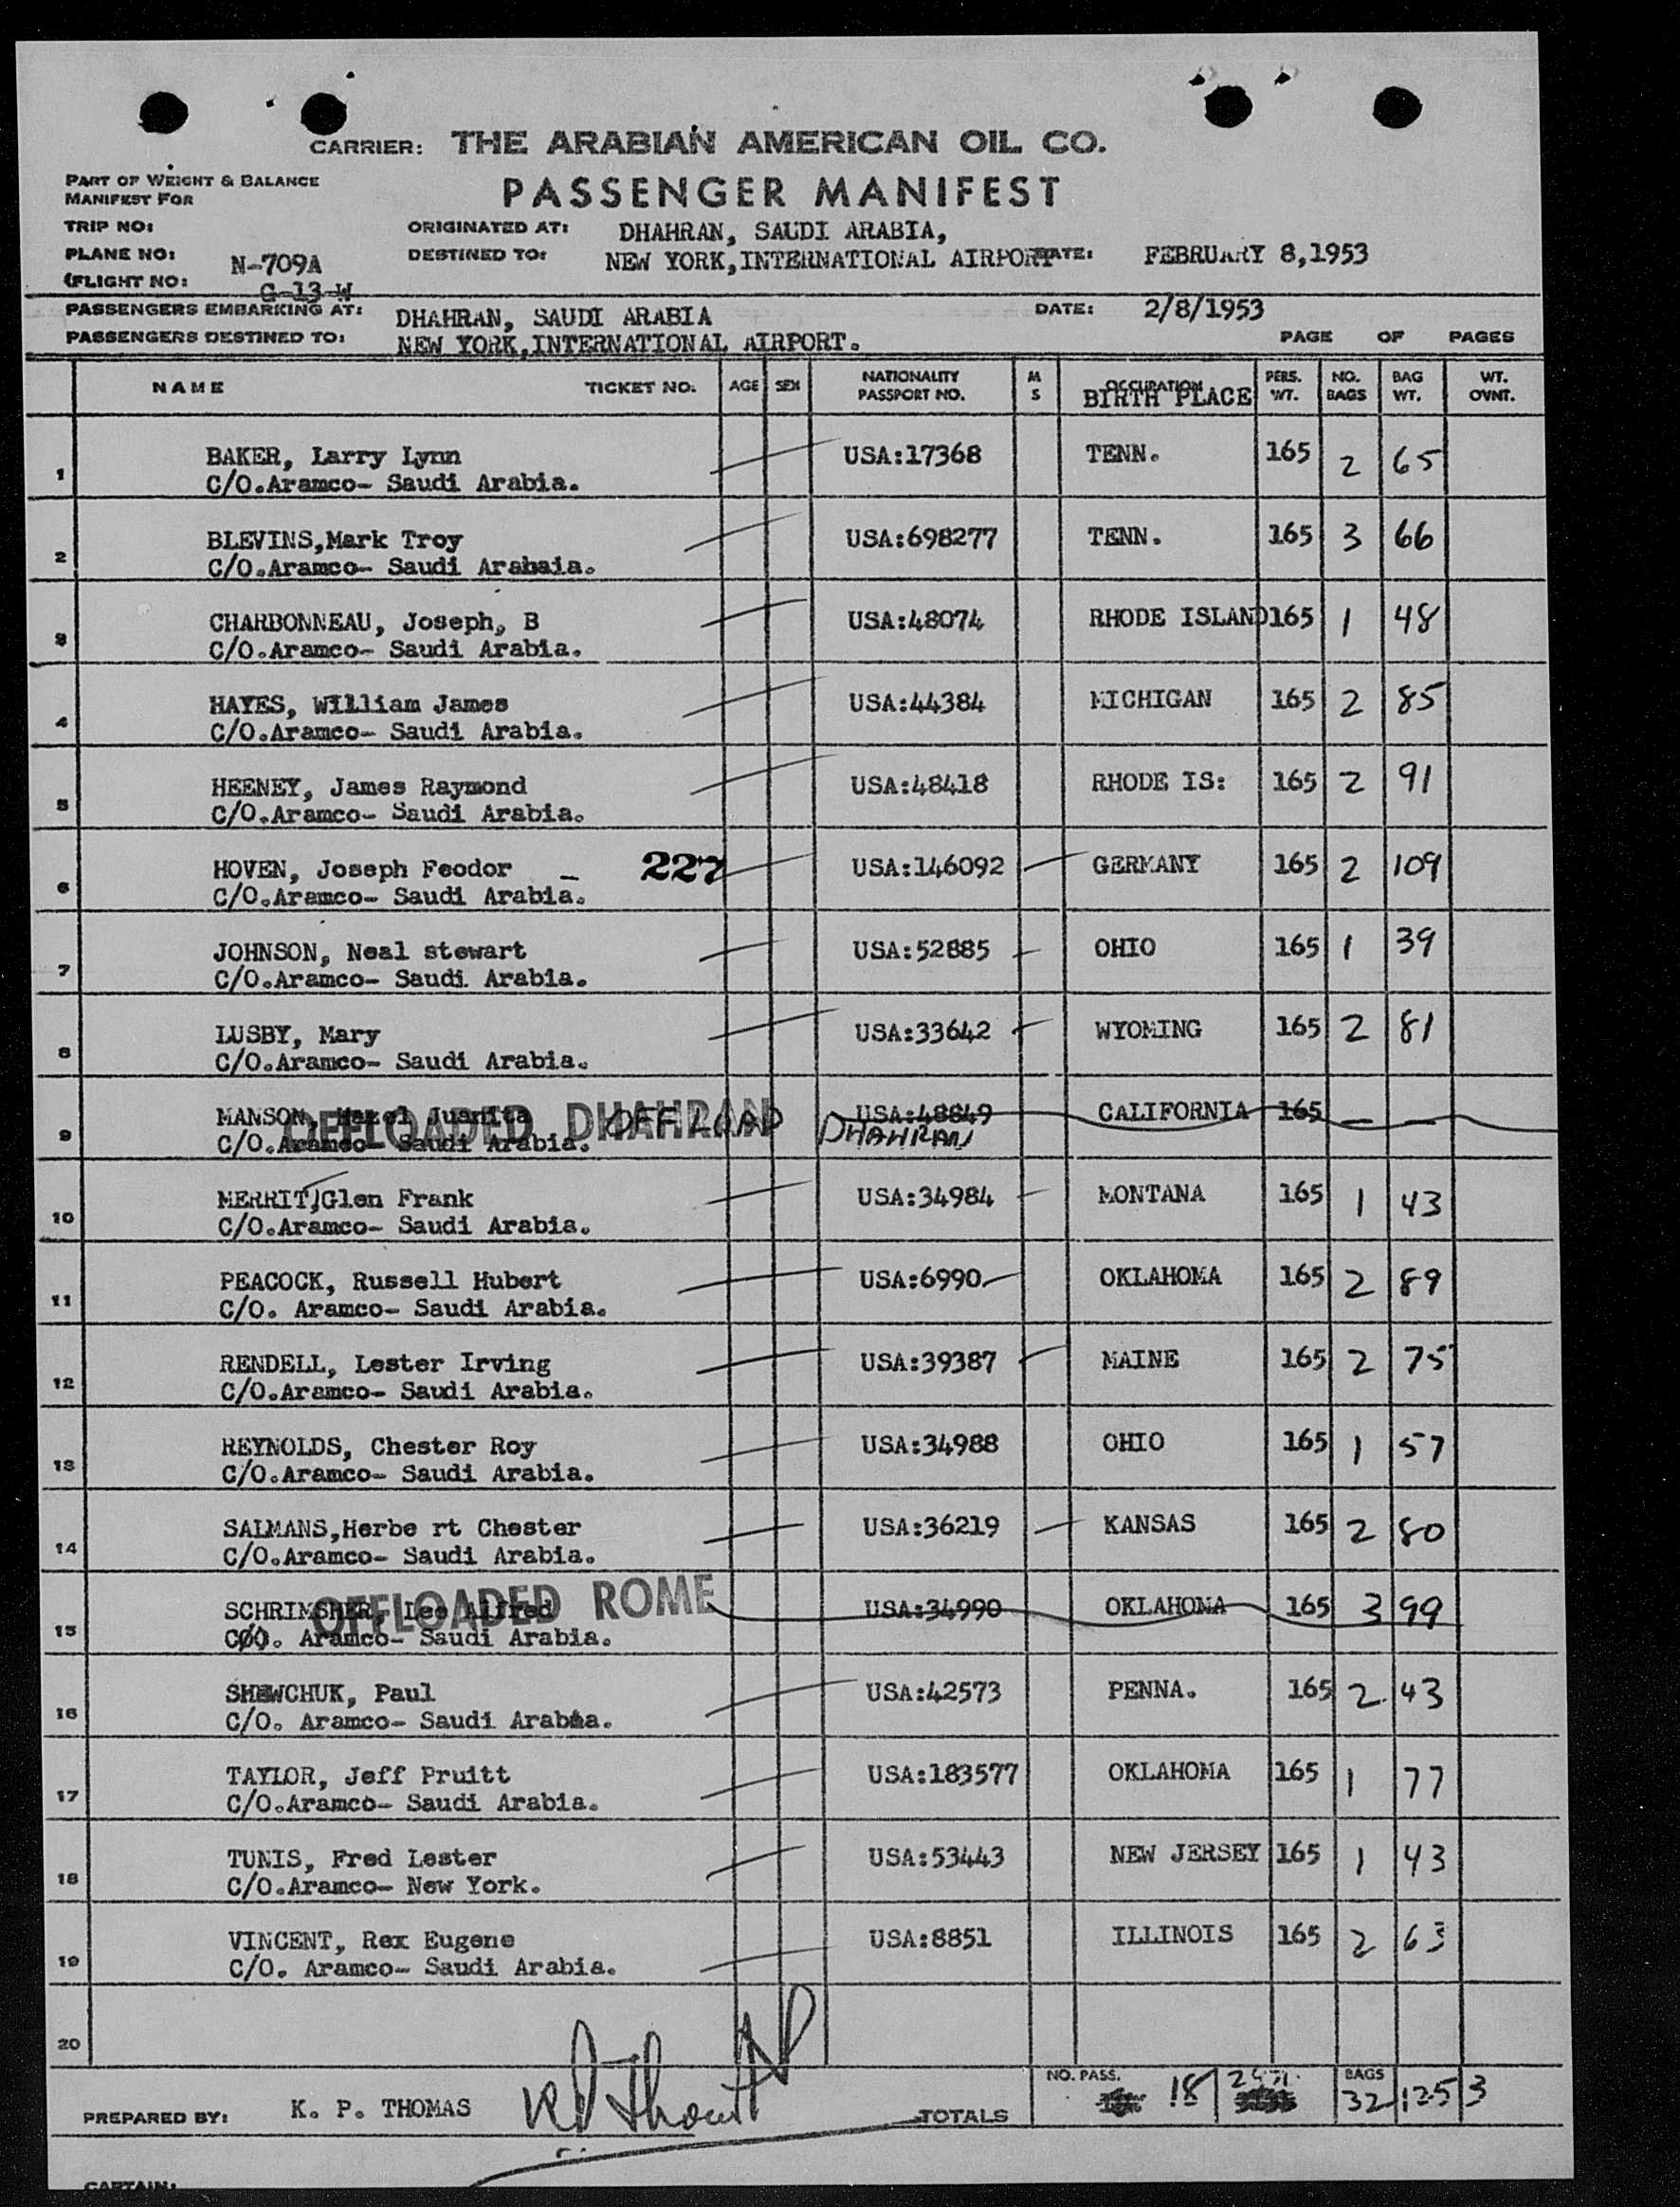 CARRIER: THE ARABIAN AMERICAN OIL CO.
PART OF WEIGHT & BALANCE
MANIFEST FOR
PASSENGER MANIFEST
TRIP NO:
ORIGINATED AT: DHAHRAN, SAUDI ARABIA,
PLANE NO: N-709A
DESTINED TO: NEW YORK,INTERNATIONAL AIRPORT DATE: FEBRUARY 8,1953
(FLIGHT NO: G-13-W
PASSENGERS EMBARKING AT: DHAHRAN, SAUDI ARABIA DATE: 2/8/1953
PASSENGERS DESTINED TO: NEW YORK,INTERNATIONAL AIRPORT. PAGE OF PAGES
NAME TICKET NO. AGE SEX NATIONALITY PASSPORT NO. M S OCCUPATION BIRTH PLACE PERS. WT. NO. BAGS BAG WT. WT. OVNT.
1 BAKER, Larry Lynn USA:17368 TENN. 165 2 65
C/O.Aramco- Saudi Arabia.
2 BLEVINS,Mark Troy USA:698277 TENN. 165 3 66
C/O.Aramco- Saudi Arabaia.
3 CHARBONNEAU, Joseph, B USA:48074 RHODE ISLAND 165 1 48
C/O.Aramco- Saudi Arabia.
4 HAYES, William James USA:44384 MICHIGAN 165 2 85
C/O.Aramco- Saudi Arabia.
5 HEENEY, James Raymond USA:48418 RHODE IS: 165 2 91
C/O.Aramco- Saudi Arabia.
6 HOVEN, Joseph Feodor - 227 USA:146092 GERMANY 165 2 109
C/O.Aramco- Saudi Arabia.
7 JOHNSON, Neal stewart USA:52885 OHIO 165 1 39
C/O.Aramco- Saudi Arabia.
8 LUSBY, Mary USA:33642 WYOMING 165 2 81
C/O.Aramco- Saudi Arabia.
9 MANSON, Hazel Juanita USA:48849 CALIFORNIA 165 — —
OFFLOADED DHAHRAN OFF LOAD DHAHRAN
C/O.Aramco- Saudi Arabia.
10 MERRIT,Glen Frank USA:34984 MONTANA 165 1 43
C/O.Aramco- Saudi Arabia.
11 PEACOCK, Russell Hubert USA:6990 OKLAHOMA 165 2 89
C/O. Aramco- Saudi Arabia.
12 RENDELL, Lester Irving USA:39387 MAINE 165 2 75
C/O.Aramco- Saudi Arabia.
13 REYNOLDS, Chester Roy USA:34988 OHIO 165 1 57
C/O.Aramco- Saudi Arabia.
14 SALMANS,Herbe rt Chester USA:36219 KANSAS 165 2 80
C/O.Aramco- Saudi Arabia.
15 SCHRIMSHER, Lee Alfred USA:34990 OKLAHOMA 165 3 99
OFFLOADED ROME
Aramco- Saudi Arabia.
16 SHEWCHUK, Paul USA:42573 PENNA. 165 2 43
C/O. Aramco- Saudi Arabia.
17 TAYLOR, Jeff Pruitt USA:183577 OKLAHOMA 165 1 77
C/O.Aramco- Saudi Arabia.
18 TUNIS, Fred Lester USA:53443 NEW JERSEY 165 1 43
C/O.Aramco- New York.
19 VINCENT, Rex Eugene USA:8851 ILLINOIS 165 2 63
C/O. Aramco- Saudi Arabia.
20
NO. PASS. 18 BAGS 32 1253
PREPARED BY: K. P. THOMAS TOTALS
CAPTAIN: